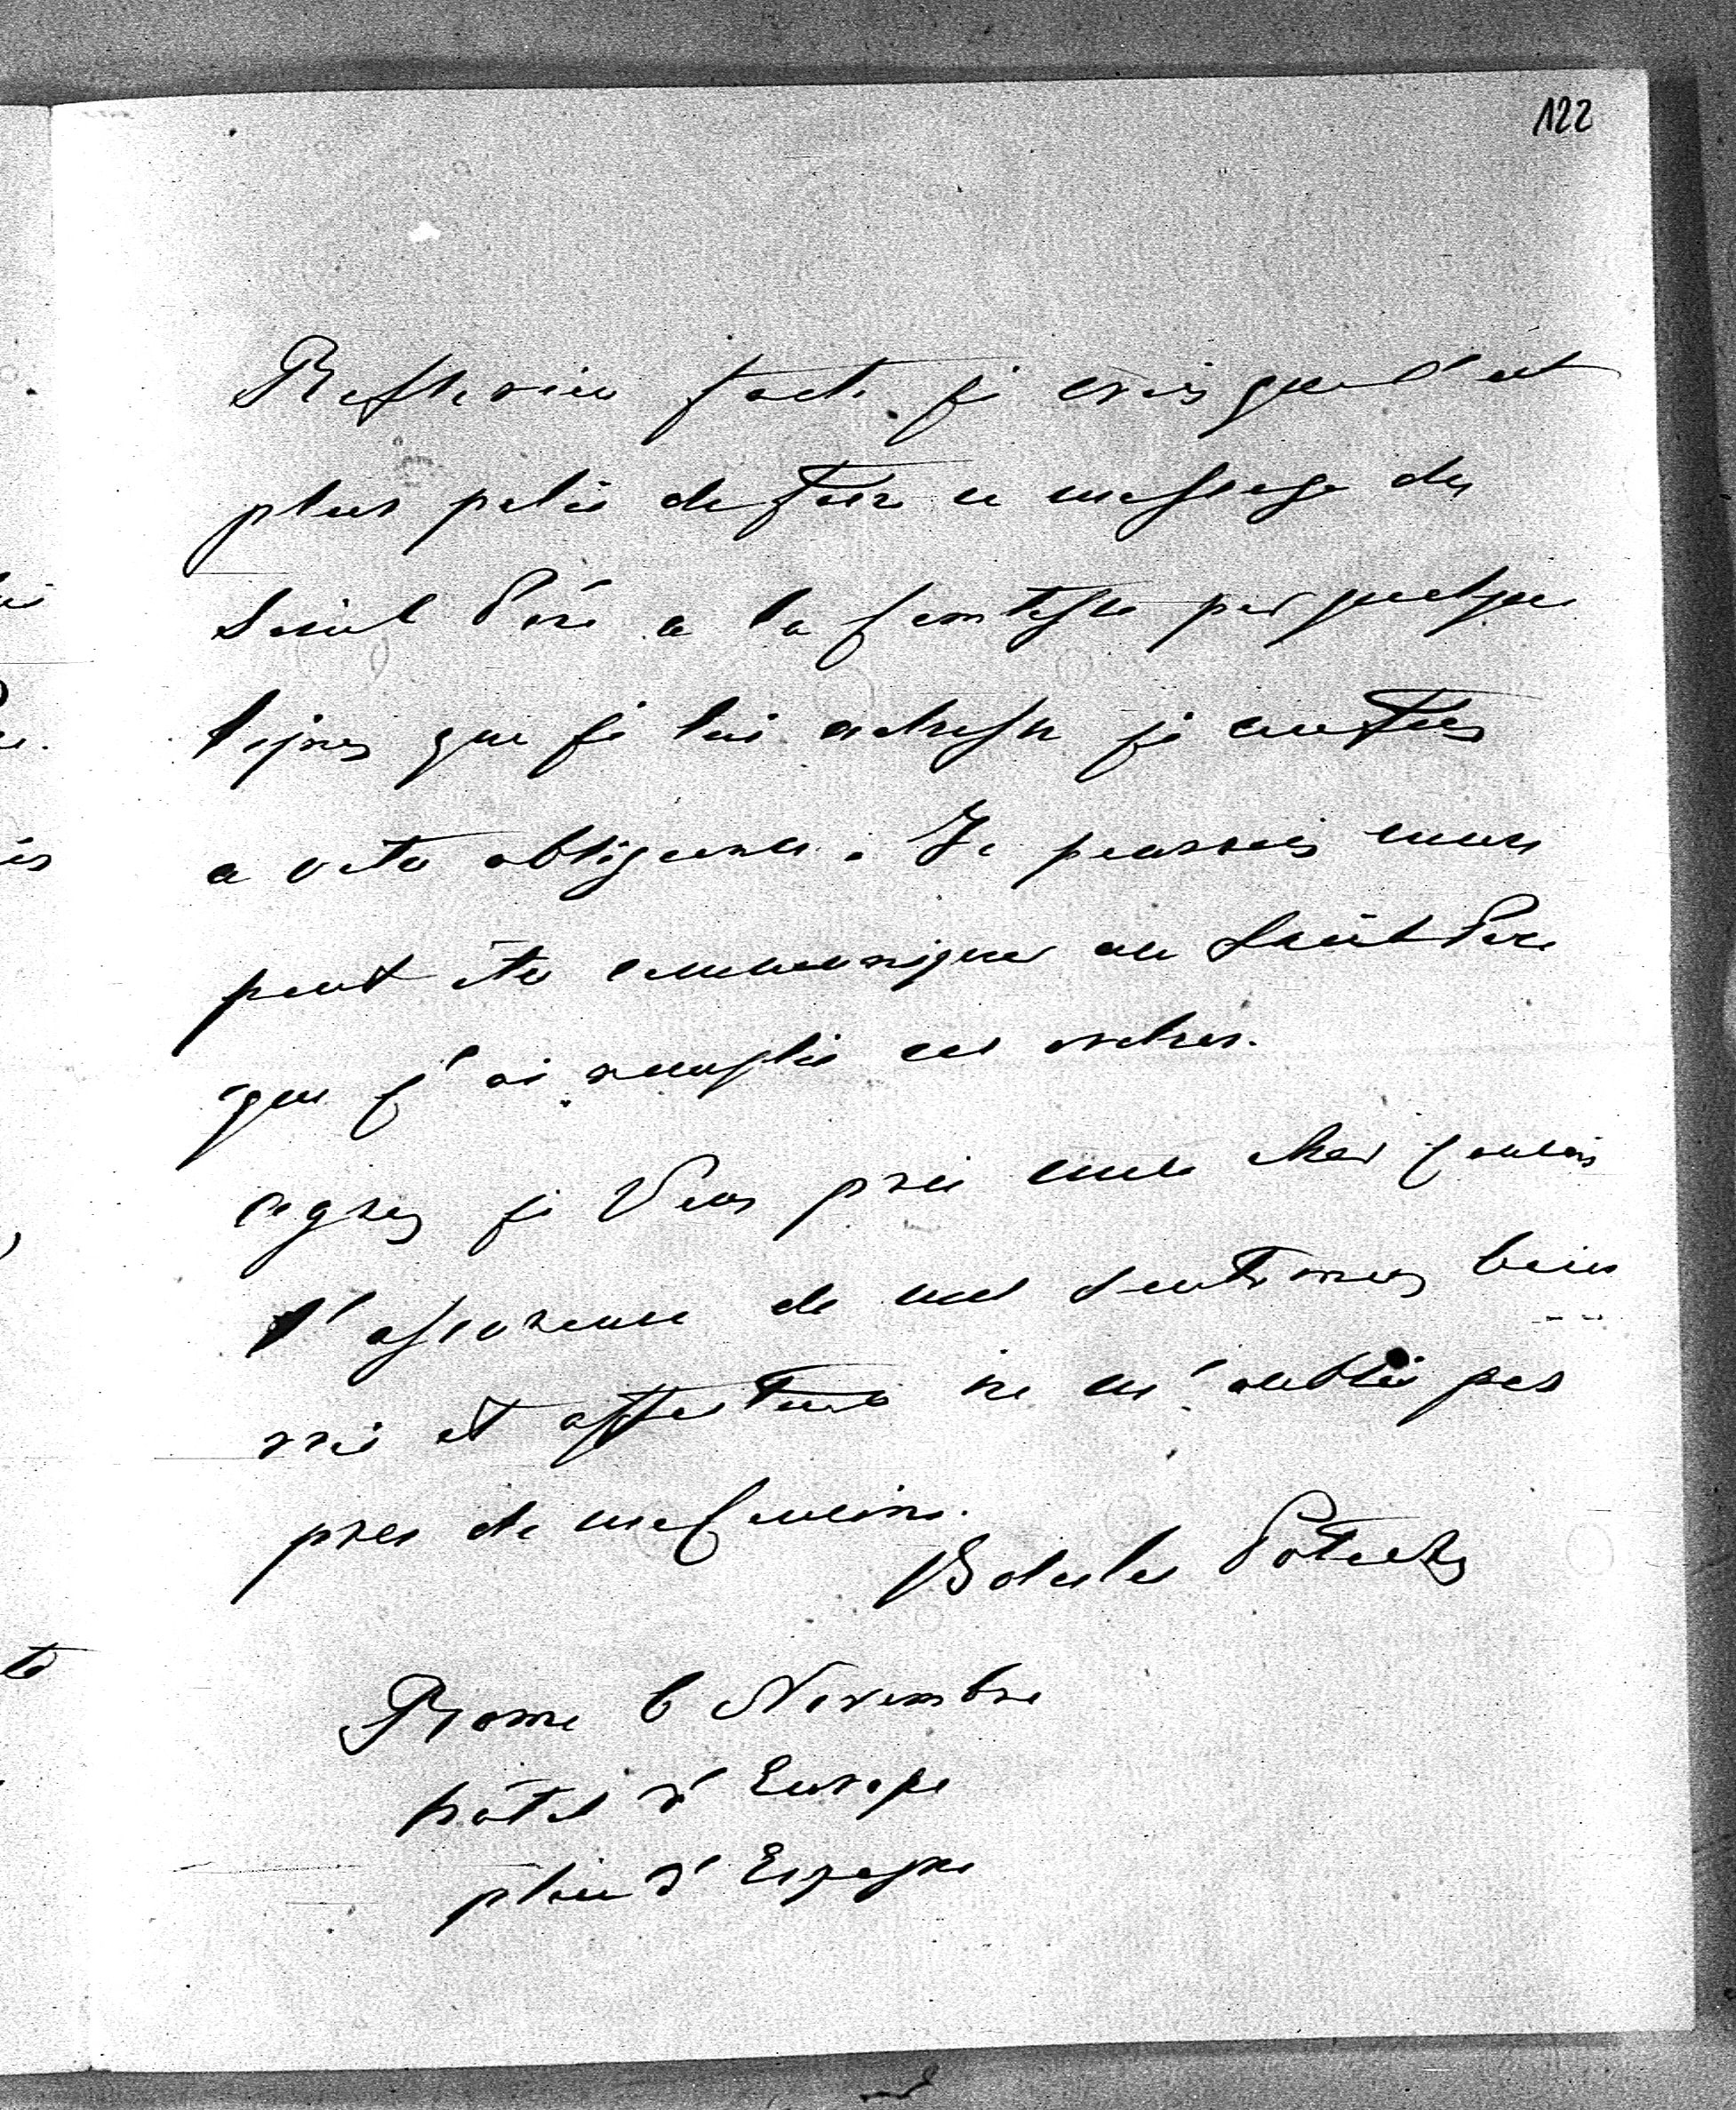 122
Reflexion faite je crois que c'est
plus poli de faire ce message du
Saint Père a la Comtesse par quelques
lignes que je lui adresse je
a votre obligeance. Je pourrais
peut etre communiquer au Saint Pere
que j'ai remplie ses ordres.
agrez je Vous prie mon cher Cousin
l'assurance de mes sentimens bien
vrai et affectueux ne m'oublie pas
pres de ma Cousine.
Potocki
Rome 6 Novembre
hôtel d'Europe
place d'Espagne